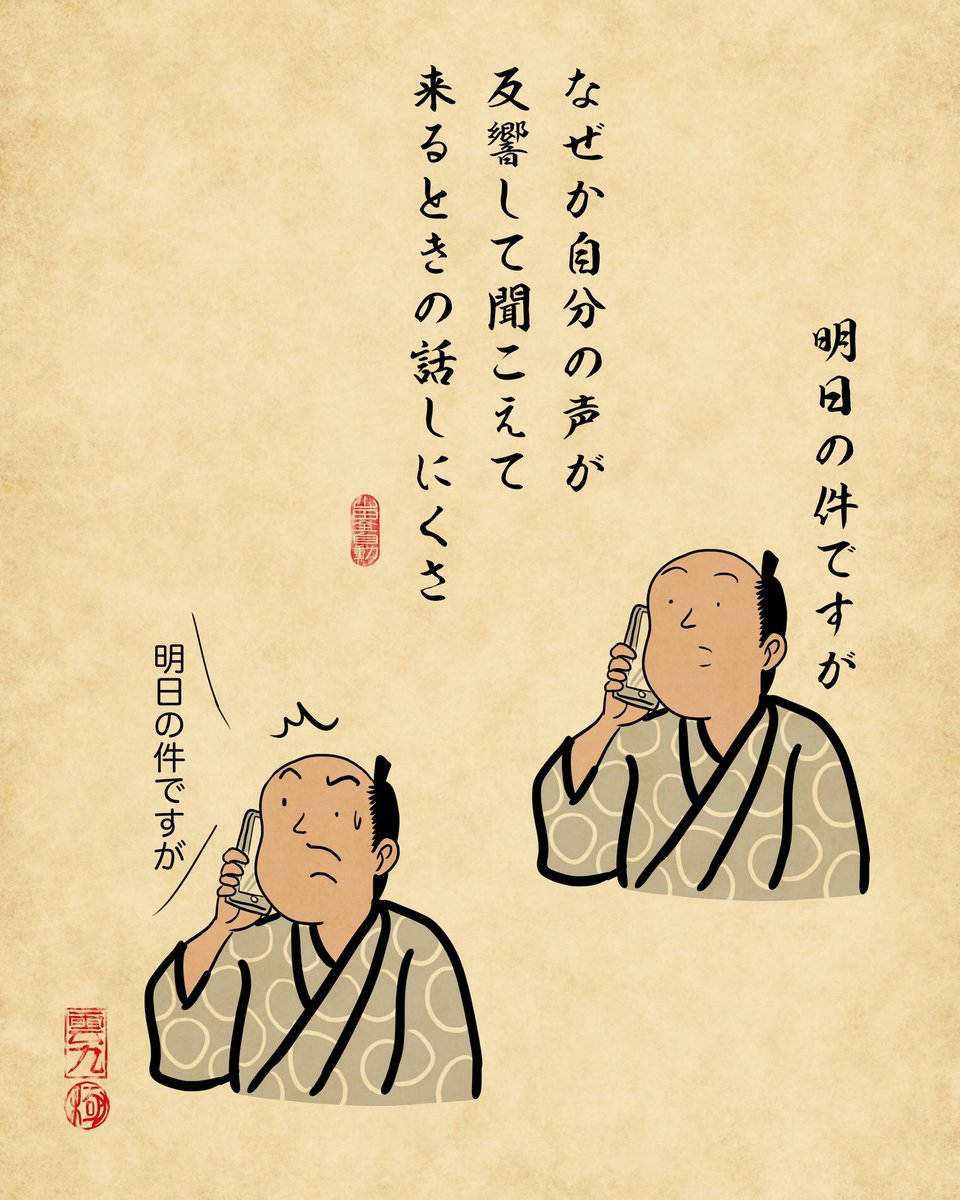 明日の件ですが
なぜか自分の声が
反響して聞こえて
来るときの話しにくさ
明日の件ですが